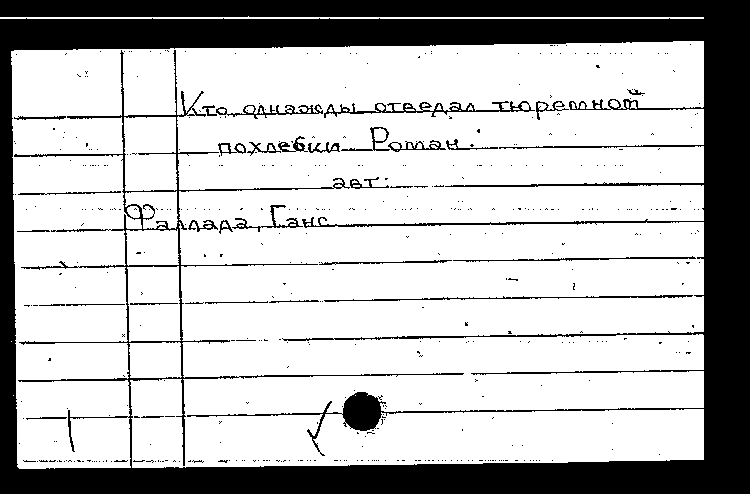 Кто однажды отведал тюремной
похлебки Роман.
авт:
Фаллада, Ганс